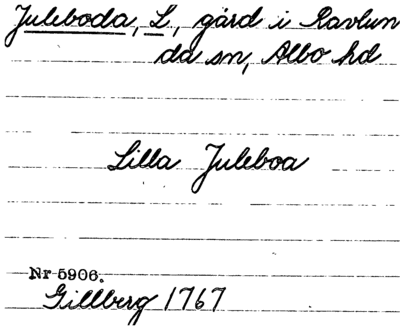 Juleboda, L., gård i Ravlun
da sn, Albo hd
Lilla Juleboa
Nr 5906.
Gillberg 1767